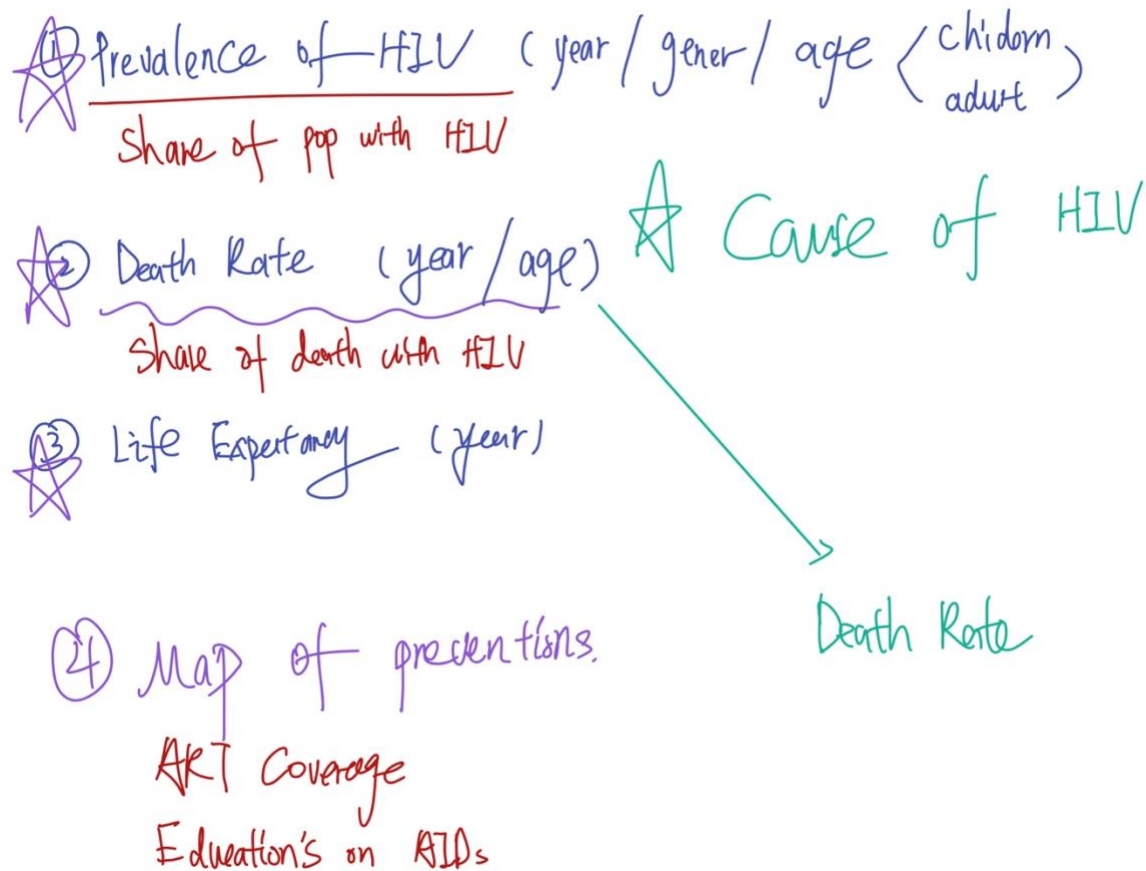 ① Prevalence of HIV (year / gener / age < chidorn
adurt >)
Share of pop with HIV
☆ Cause of HIV
② Death Rate (year / age)
Share of death with HIV
③ Life Expertancy (year)
Death Rate
④ Map of preventions.
ART Coverage
Education's on AIDs